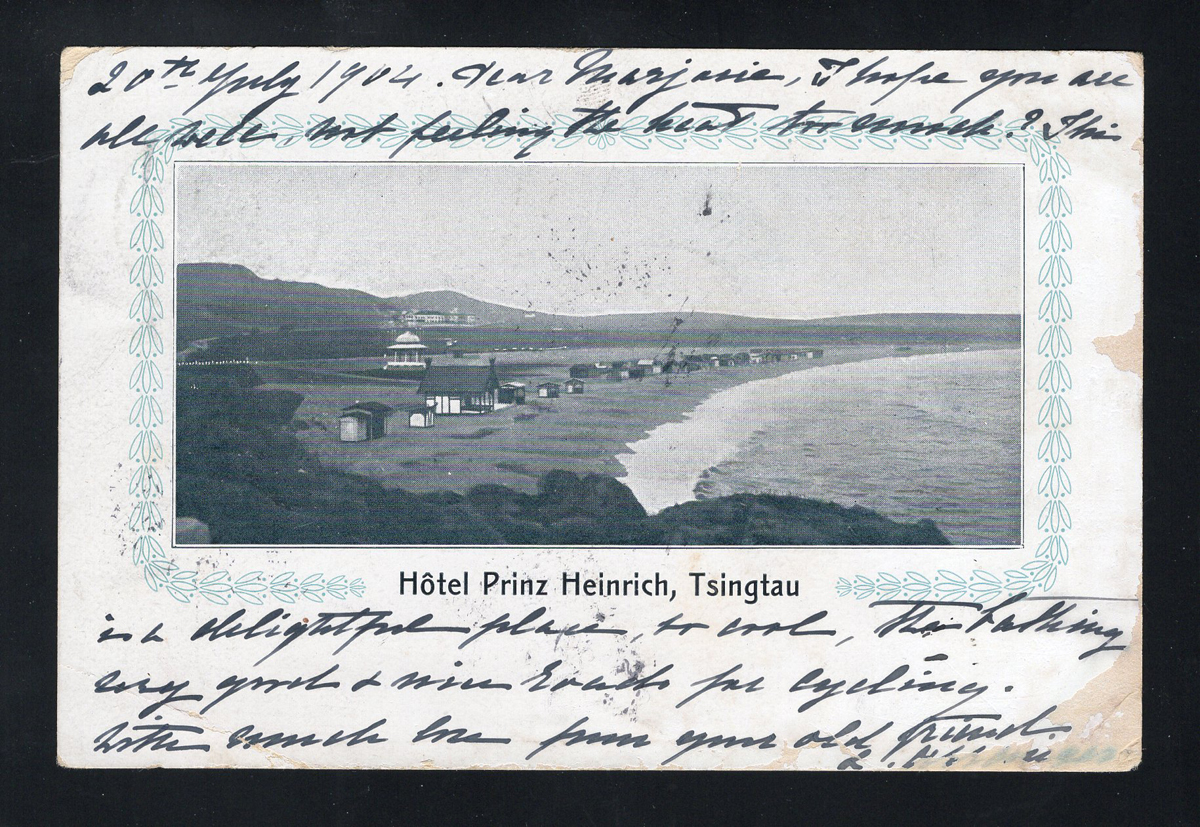 20th July 1904. Dear Marjorie, I hope you are
all well, not feeling the heat too much? This
Hôtel Prinz Heinrich, Tsingtau
is a delightful place, so cool, the bathing
very good & nice roads for cycling.
With much love from your old friend